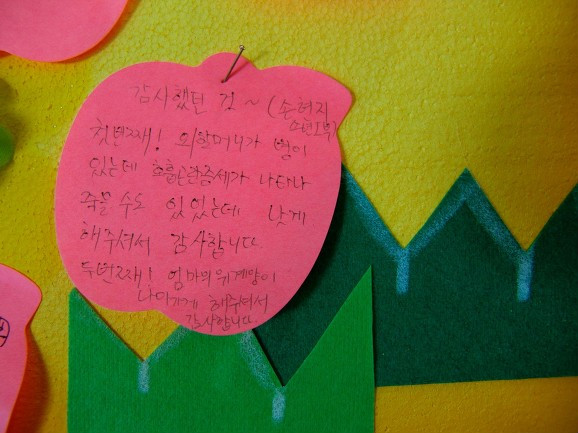 감사했던 것~ (손현지
첫번째! 외할머니가 병이
있는데 호흡곤란증세가 나타나
죽을 수도 있있는데 낫게
해주셔서 감사합니다.
두번째! 엄마의 위궤양이
나아지게 해주셔서
감사합니다.